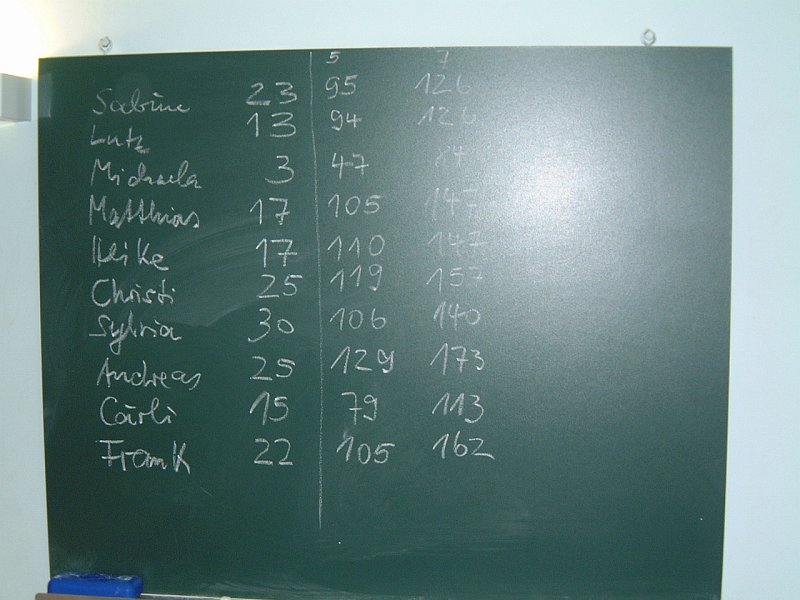 5 7
Sabine 23 95 126
Lutz 13 94 126
Michaela 3 47
Matthias 17 105 147
Heike 17 110 147
Christi 25 119 157
Sylvia 30 106 140
Andreas 25 129 173
Carli 15 79 113
Frank 22 105 162